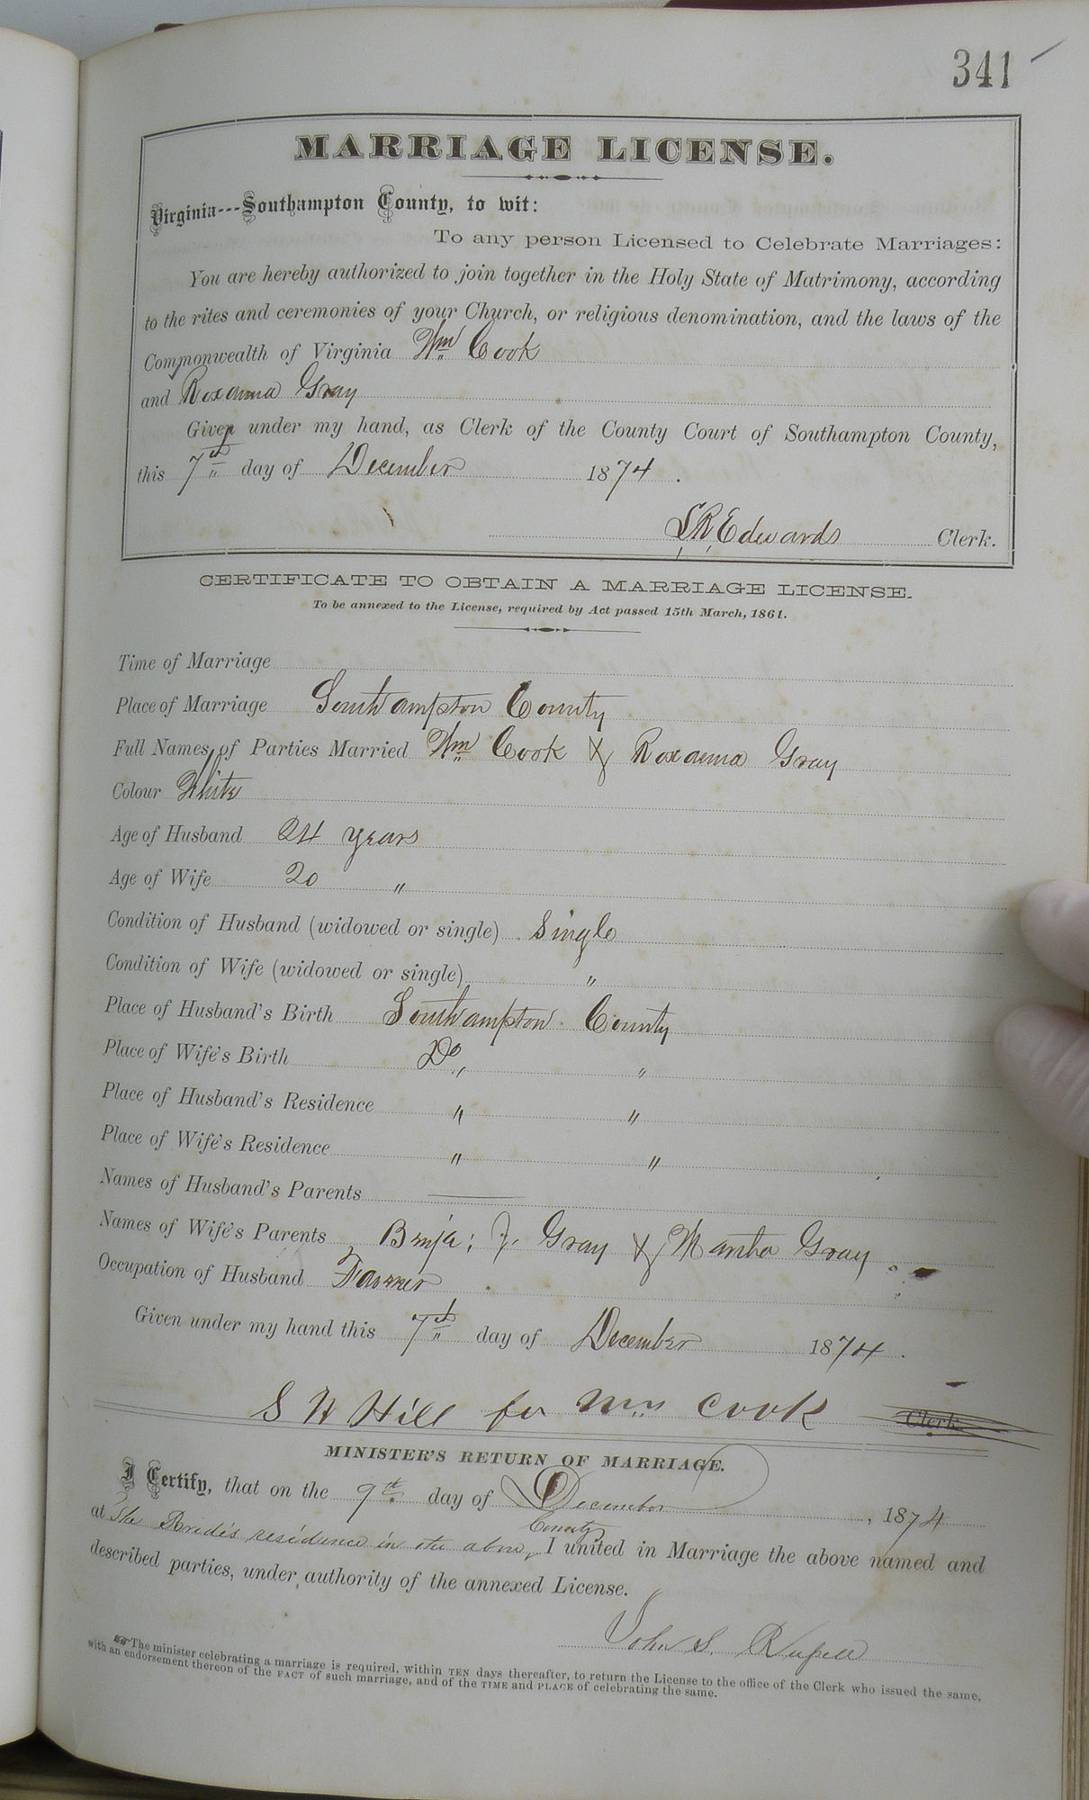 341
MARRIAGE LICENSE.
Virginia---Southampton County, to wit:
To any person Licensed to Celebrate Marriages:
You are hereby authorized to join together in the Holy State of Matrimony, according
to the rites and ceremonies of your Church, or religious denomination, and the laws of the
Commonwealth of Virginia Wm Cook
and Roxanna Gray
Given under my hand, as Clerk of the County Court of Southampton County,
this 7th day of December 1874.
Edwards Clerk.
CERTIFICATE TO OBTAIN A MARRIAGE LICENSE.
To be annexed to the License, required by Act passed 15th March, 1861.
Time of Marriage
Place of Marriage Southampton County
Full Names of Parties Married Wm Cook & Roxanna Gray
Colour White
Age of Husband 24 years
Age of Wife 20 "
Condition of Husband (widowed or single) Single
Condition of Wife (widowed or single) "
Place of Husband's Birth Southampton County
Place of Wife's Birth Do "
Place of Husband's Residence " "
Place of Wife's Residence " "
Names of Husband's Parents —
Names of Wife's Parents Benja: J. Gray & Martha Gray
Occupation of Husband Farmer
Given under my hand this 7th day of December 1874.
Hill for Wm Cook Clerk
MINISTER'S RETURN OF MARRIAGE.
I Certify, that on the 9th day of December, 1874
at The Bride's residence in the above County, I united in Marriage the above named and
described parties, under authority of the annexed License.
John S.
The minister celebrating a marriage is required, within TEN days thereafter, to return the License to the office of the Clerk who issued the same,
with an endorsement thereon of the FACT of such marriage, and of the TIME and PLACE of celebrating the same.